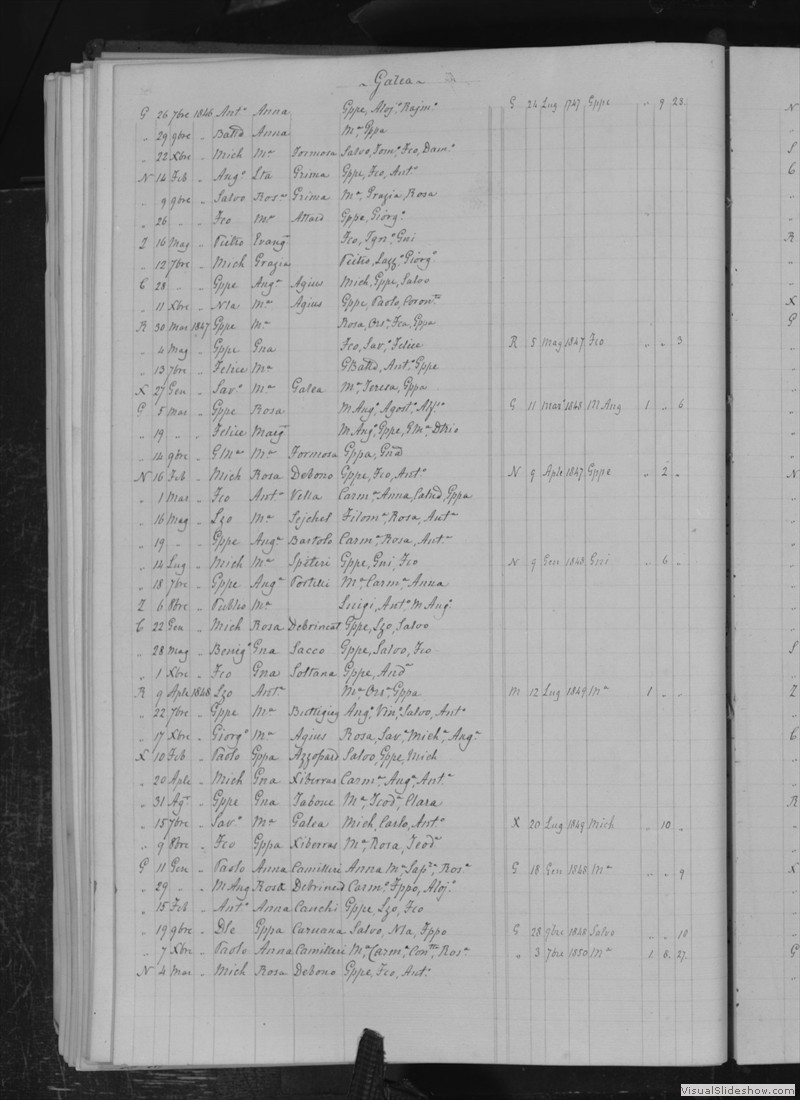 ~ Galea ~
G 26 7bre 1846 Ant.o Anna Gppe, Aloj.o Rajm.o G 24 Lug 1747 Gppe „ 9 23
„ 29 9bre „ Batta Anna M.a Gppa
„ 22 Xbre „ Mich M.a Formosa Salvo, Tom.o, Fco, Dam.o
N 14 Feb „ Aug.o Sta Grima Gppe, Fco, Ant.o
„ 9 9bre „ Salvo Ros.a Grima M.a, Grazia, Rosa
„ 26 „ „ Fco M.a Attard Gppe, Giorg.o
Z 16 Mag „ Pietro Evang.a Fco, Ign.o, Gni
„ 12 7bre „ Mich Grazia Pietro, Lazz.o, Giorg.o
C 28 „ „ Gppe Ang.a Agius Mich, Gppe, Salvo
„ 11 Xbre „ Nla M.a Agius Gppe, Paolo,
R 30 Mar 1847 Gppe M.a Rosa, Ors.a, Fca, Gppa
„ 4 Mag „ Gppe Gna Fco, Sav.o, Felice R 5 Mag 1847 Fco „ „ 3
„ 13 7bre „ Felice M.a GBatta, Ant.o, Gppe
X 27 Gen „ Sav.o M.a Galea M.a, Teresa, Gppa
G 5 Mar „ Gppe Rosa M Ang.o, Agost.o, Alf.o G 11 Mar 1848 M Ang 1 „ 6
„ 19 „ „ Felice Marg.a M Ang.o, Gppe, GM.a,
„ 14 9bre „ GM.a M.a Formosa Gppa, Gna
N 16 Feb „ Mich Rosa Debono Gppe, Fco, Ant.o N 9 Aple 1847 Gppe „ 2 „
„ 1 Mar „ Fco Ant.a Vella Carm.a, Anna, Calcid, Gppa
„ 16 Mag „ Lzo M.a Sejchel Filom.a, Rosa, Ant.a
„ 19 „ „ Gppe Ang.a Bartolo Carm.a, Rosa, Ant.a
„ 14 Lug „ Mich M.a Spiteri Gppe, Gni, Fco N 9 Gen 1848 Gni „ 6 „
„ 18 7bre „ Gppe Ang.a Portelli M.a, Carm.a, Anna
Z 6 8bre „ Publio M.a Luigi, Ant.o, M Ang.o
C 22 Gen „ Mich Rosa Debrincat Gppe, Lzo, Salvo
„ 28 Mag „ Benig.o Gna Sacco Gppe, Salvo, Fco
„ 1 Xbre „ Fco Gna Soltana Gppe, And.a
R 9 Aple 1848 Lzo Ant.a M.a, Ors.a, Gppa M 12 Lug 1849 M.a 1 „ „
„ 22 7bre „ Gppe M.a Buttigieg Ang.o, Vin.o, Salvo, Ant.o
„ 17 Xbre „ Giorg.o M.a Agius Rosa, Sav.a, Mich.a, Ang.a
X 10 Feb „ Paolo Gppa Azzopard Salvo, Gppe, Mich
„ 20 Aple „ Mich Gna Xiberras Carm.a, Ang.a, Ant.a
„ 31 Ag.o „ Gppe Gna Tabone M.a, Teod.a, Clara
„ 15 7bre „ Sav.o M.a Galea Mich, Carlo, Ant.o X 20 Lug 1849 Mich „ 10 „
„ 9 8bre „ Fco Gppa Xiberras M.a, Rosa, Teod.a
G 11 Gen „ Paolo Anna Camilleri Anna M.a, Sap.a, Ros.a G 18 Gen 1848 M.a „ „ 9
„ 29 „ „ M Ang Rosa Debrincat Carm.o, Fppo, Aloj.o
„ 15 Feb „ Ant.o Anna Canchi Gppe, Lzo, Fco
„ 19 9bre „ Dle Gppa Caruana Salvo, Nla, Fppo G 28 9bre 1848 Salvo „ „ 10
„ 7 Xbre „ Paolo Anna Camilleri M.a, Carm.a, Con.tta, Ros.a „ 3 7bre 1850 M.a 1 8 27
N 4 Mar „ Mich Rosa Debono Gppe, Fco, Ant.o
VisualSlideshow.com